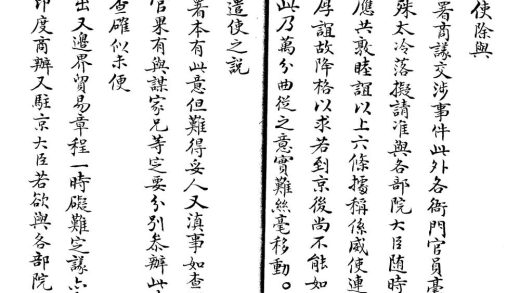 使除與
署商議交涉事件此外各衙門官員毫
殊太冷落擬請准與各部院大臣随時
應共敦睦誼以上六條據稱係威使連
厚誼故降格以求若到京後尚不能如
此乃萬分曲從之意實難絲毫移動。
遣使之説
署本有此意但難得妥人又滇事如查
官果有與謀家兄等定要分別叅辦此
查確似未便
出又邊界貿易章程一時礙難定議
印度商辦又駐京大臣若欲與各部院